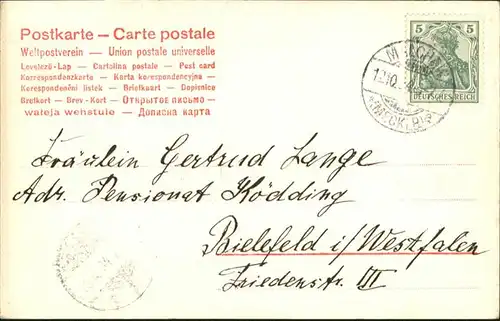 Postkarte — Carte postale
Weltpostverein — Union postale universelle
Levelező-Lap — Cartolina postale — Post card
Korrespondenzkarte — Karta korespondencyjna —
Korespondenční lístek — Briefkaart — Dopisnice
Brefkort — Brev-Kort — Открытое письмо —
— Дописна карта
5 5
DEUTSCHES REICH
Fräulein Gertrud Lange
Adr. Pensionat Ködding
Bielefeld i/Westfalen
Friedenstr. III